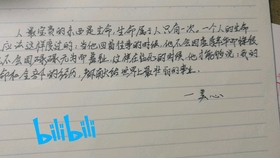 人最宝贵的东西是生命,生命属于人只有一次。一个人的生命
应该这样度过的:当他回首往事的时候,他不会因虚度年华而悔恨
不会因碌碌无为而羞耻。这样在临死的时候,他才能够说:我的
命和全部的经历,都献给世界上最壮丽的事业。
bilibili